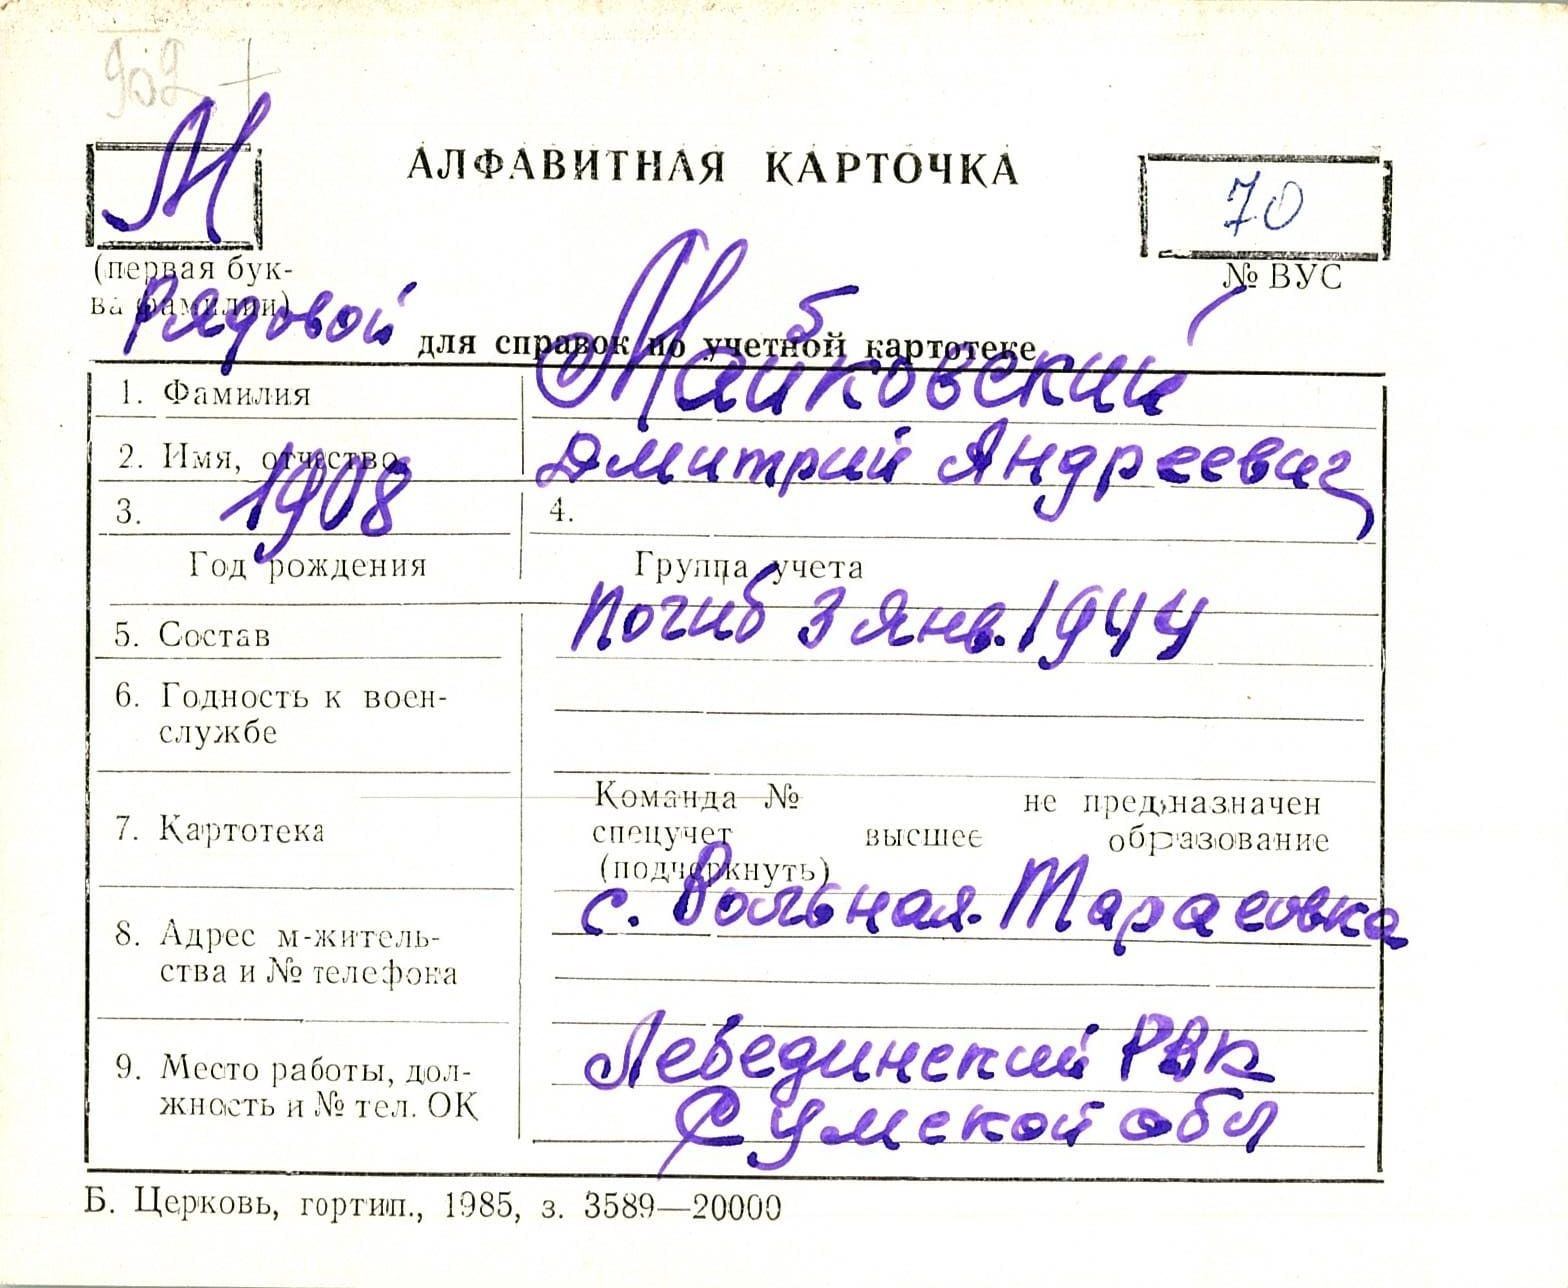 902 +
М
АЛФАВИТНАЯ КАРТОЧКА
70
(первая бук-
ва фамилии)
№ ВУС
Рядовой
для справок по учетной картотеке
1. Фамилия
Майбковский
2. Имя, отчество
Дмитрий Андреевич
3. 1908
4.
Год рождения
Группа учета
5. Состав
Погиб 3 янв. 1944
6. Годность к воен-
службе
7. Картотека
Команда № не предназначен
спецучет высшее образование
(подчеркнуть)
8. Адрес м-житель-
ства и № телефона
с. Вольная-Тарасовка
9. Место работы, дол-
жность и № тел. ОК
Лебединский РВК
Сумской обл
Б. Церковь, гортип., 1985, з. 3589—20000